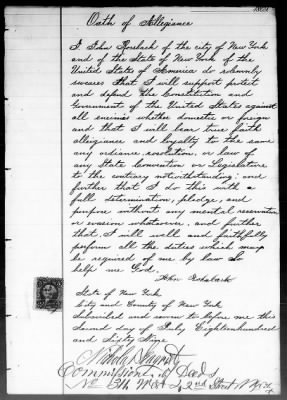 Oath of Allegiance
I John Rorback of the city of New York
and of the State of New York of the
United States of America do solemnly
swears that I will support protet
and defend the Constitution and
Government of the United States against
all enimies whether domestic or foreign
and that I will bear true faith
allegiance and loyalty to the same
any ordiance resolution, or law of
any State Convention or Legislature
to the contrary notwithstanding; and
further that I do this with a
full determination, pledge, and
purpose without any mental reservation
or evasion whatsoever, and further
that, I will well and faithfully
perform all the duties which may
be required of me by law So
help me God.
John
State of New York
City and County of New York
Subscribed and sworn to before me this
Second day of July Eighteen hundred
and Sixty Nine
Commissioner of Deeds
No 311 West 42nd Street N.Y.